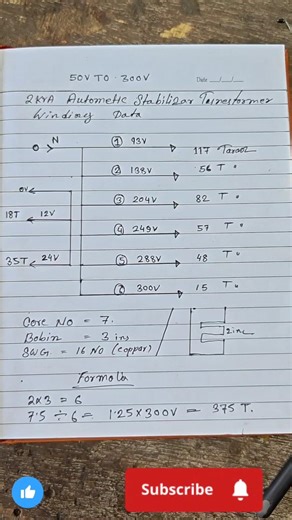 50V TO 300V
Date __/__/__
2KVA Autometic Stabilizar Taransformer
Winding Data
N
① 93V 117 Taran
② 138V 56 T
③ 204V 82 T
④ 249V 57 T
⑤ 288V 48 T
⑥ 300V 15 T
0V
18T 12V
35T 24V
Core No = 7.
Bobin = 3 ins
SWG = 16 No (coppar)
2 inc
Formola
2x3 = 6
7.5 ÷ 6 = 1.25 x 300V = 375 T.
Subscribe